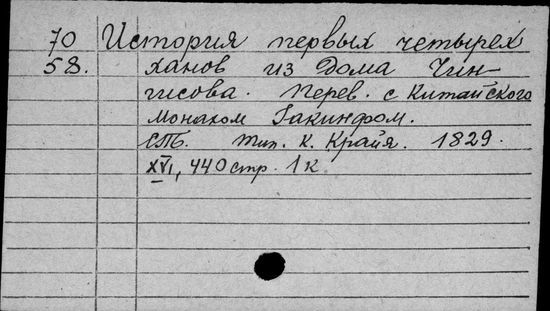 70 История первых четырех
58. ханов из Дома Чин-
гисова. Перев. с китайского
монахом Іакинфом.
СПб. Тип. К. Крайя. 1829.
XVI, 440 стр. 1 к.